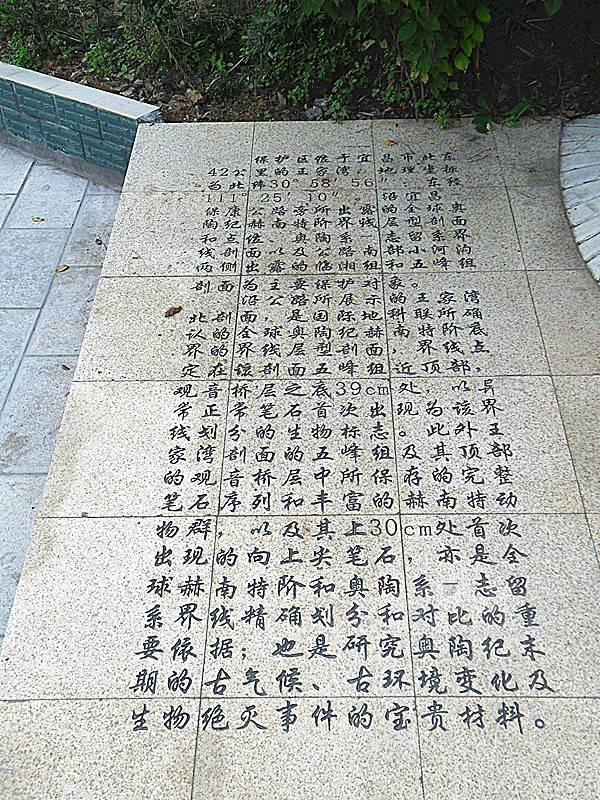 保护区位于宜昌市北东
42公里的王家湾，地理坐标
为北纬30°58′56″，东经
111°25′10″。沿宜昌
保康公路旁所出露的全球奥
陶纪赫南特阶界线层型剖面
和点位、奥陶系志留系界
线剖面以及公路南部小河沟
两侧出露的临湘组和五峰组
剖面为主要保护对象。
沿公路所展示的王家湾
北剖面，是国际地科联所确
认的全球奥陶纪赫南特阶底
界的界线层型剖面，界线点
定在该剖面五峰组近顶部，
观音桥层之底39cm处，以异
常正常笔石首次出现为该界
线划分的生物标志。此外王
家湾剖面的五峰组及其顶部
的观音桥层中所保存的完整
笔石序列和丰富的赫南特动
物群，以及其上30cm处首次
出现的向上尖笔石，亦是全
球赫南特阶和奥陶系—志留
系界线精确划分和对比的重
要依据；也是研究奥陶纪末
期的古气候、古环境变化及
生物绝灭事件的宝贵材料。